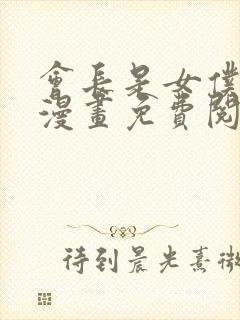 會長是女僕
漫畫免費閱
待到晨光熹微